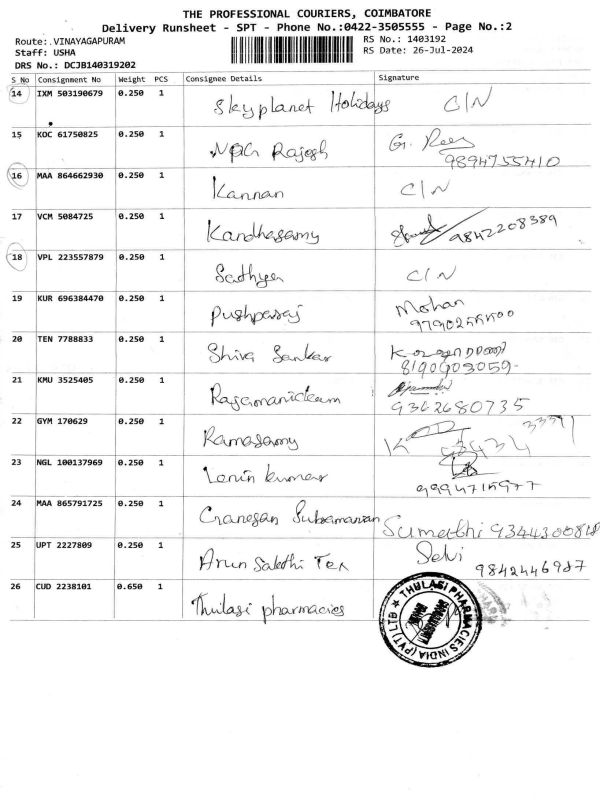 THE PROFESSIONAL COURIERS, COIMBATORE
Delivery Runsheet - SPT - Phone No.:0422-3505555 - Page No.:2
Route:.VINAYAGAPURAM
RS No.: 1403192
Staff: USHA
RS Date: 26-Jul-2024
DRS No.: DCJB140319202
S No Consignment No Weight PCS Consignee Details Signature
14 IXM 503190679 0.250 1 Skyplanet Holidays C/N
15 KOC 61750825 0.250 1 Rajesh G.
9894755410
16 MAA 864662930 0.250 1 Kannan C/N
17 VCM 5084725 0.250 1 Kandhasamy 9842208389
18 VPL 223557879 0.250 1 Sathya C/N
19 KUR 696384470 0.250 1 Pushparaj Mohan
20 TEN 7788833 0.250 1 Shiva Sankar
8190903059-
21 KMU 3525405 0.250 1 Rajamanickam
9362680735
22 GYM 170629 0.250 1 Ramasamy
23 NGL 100137969 0.250 1 Lenin kumar
24 MAA 865791725 0.250 1 Ganesan Subramanian Sumathi
25 UPT 2227809 0.250 1 Arun Sakthi Tex Selvi
9842446987
26 CUD 2238101 0.650 1 Thulasi pharmacies
THULASI PHARMACIES INDIA (PVT) LTD